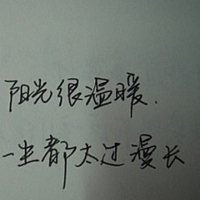 阳光很温暖.
一尘都太过漫长